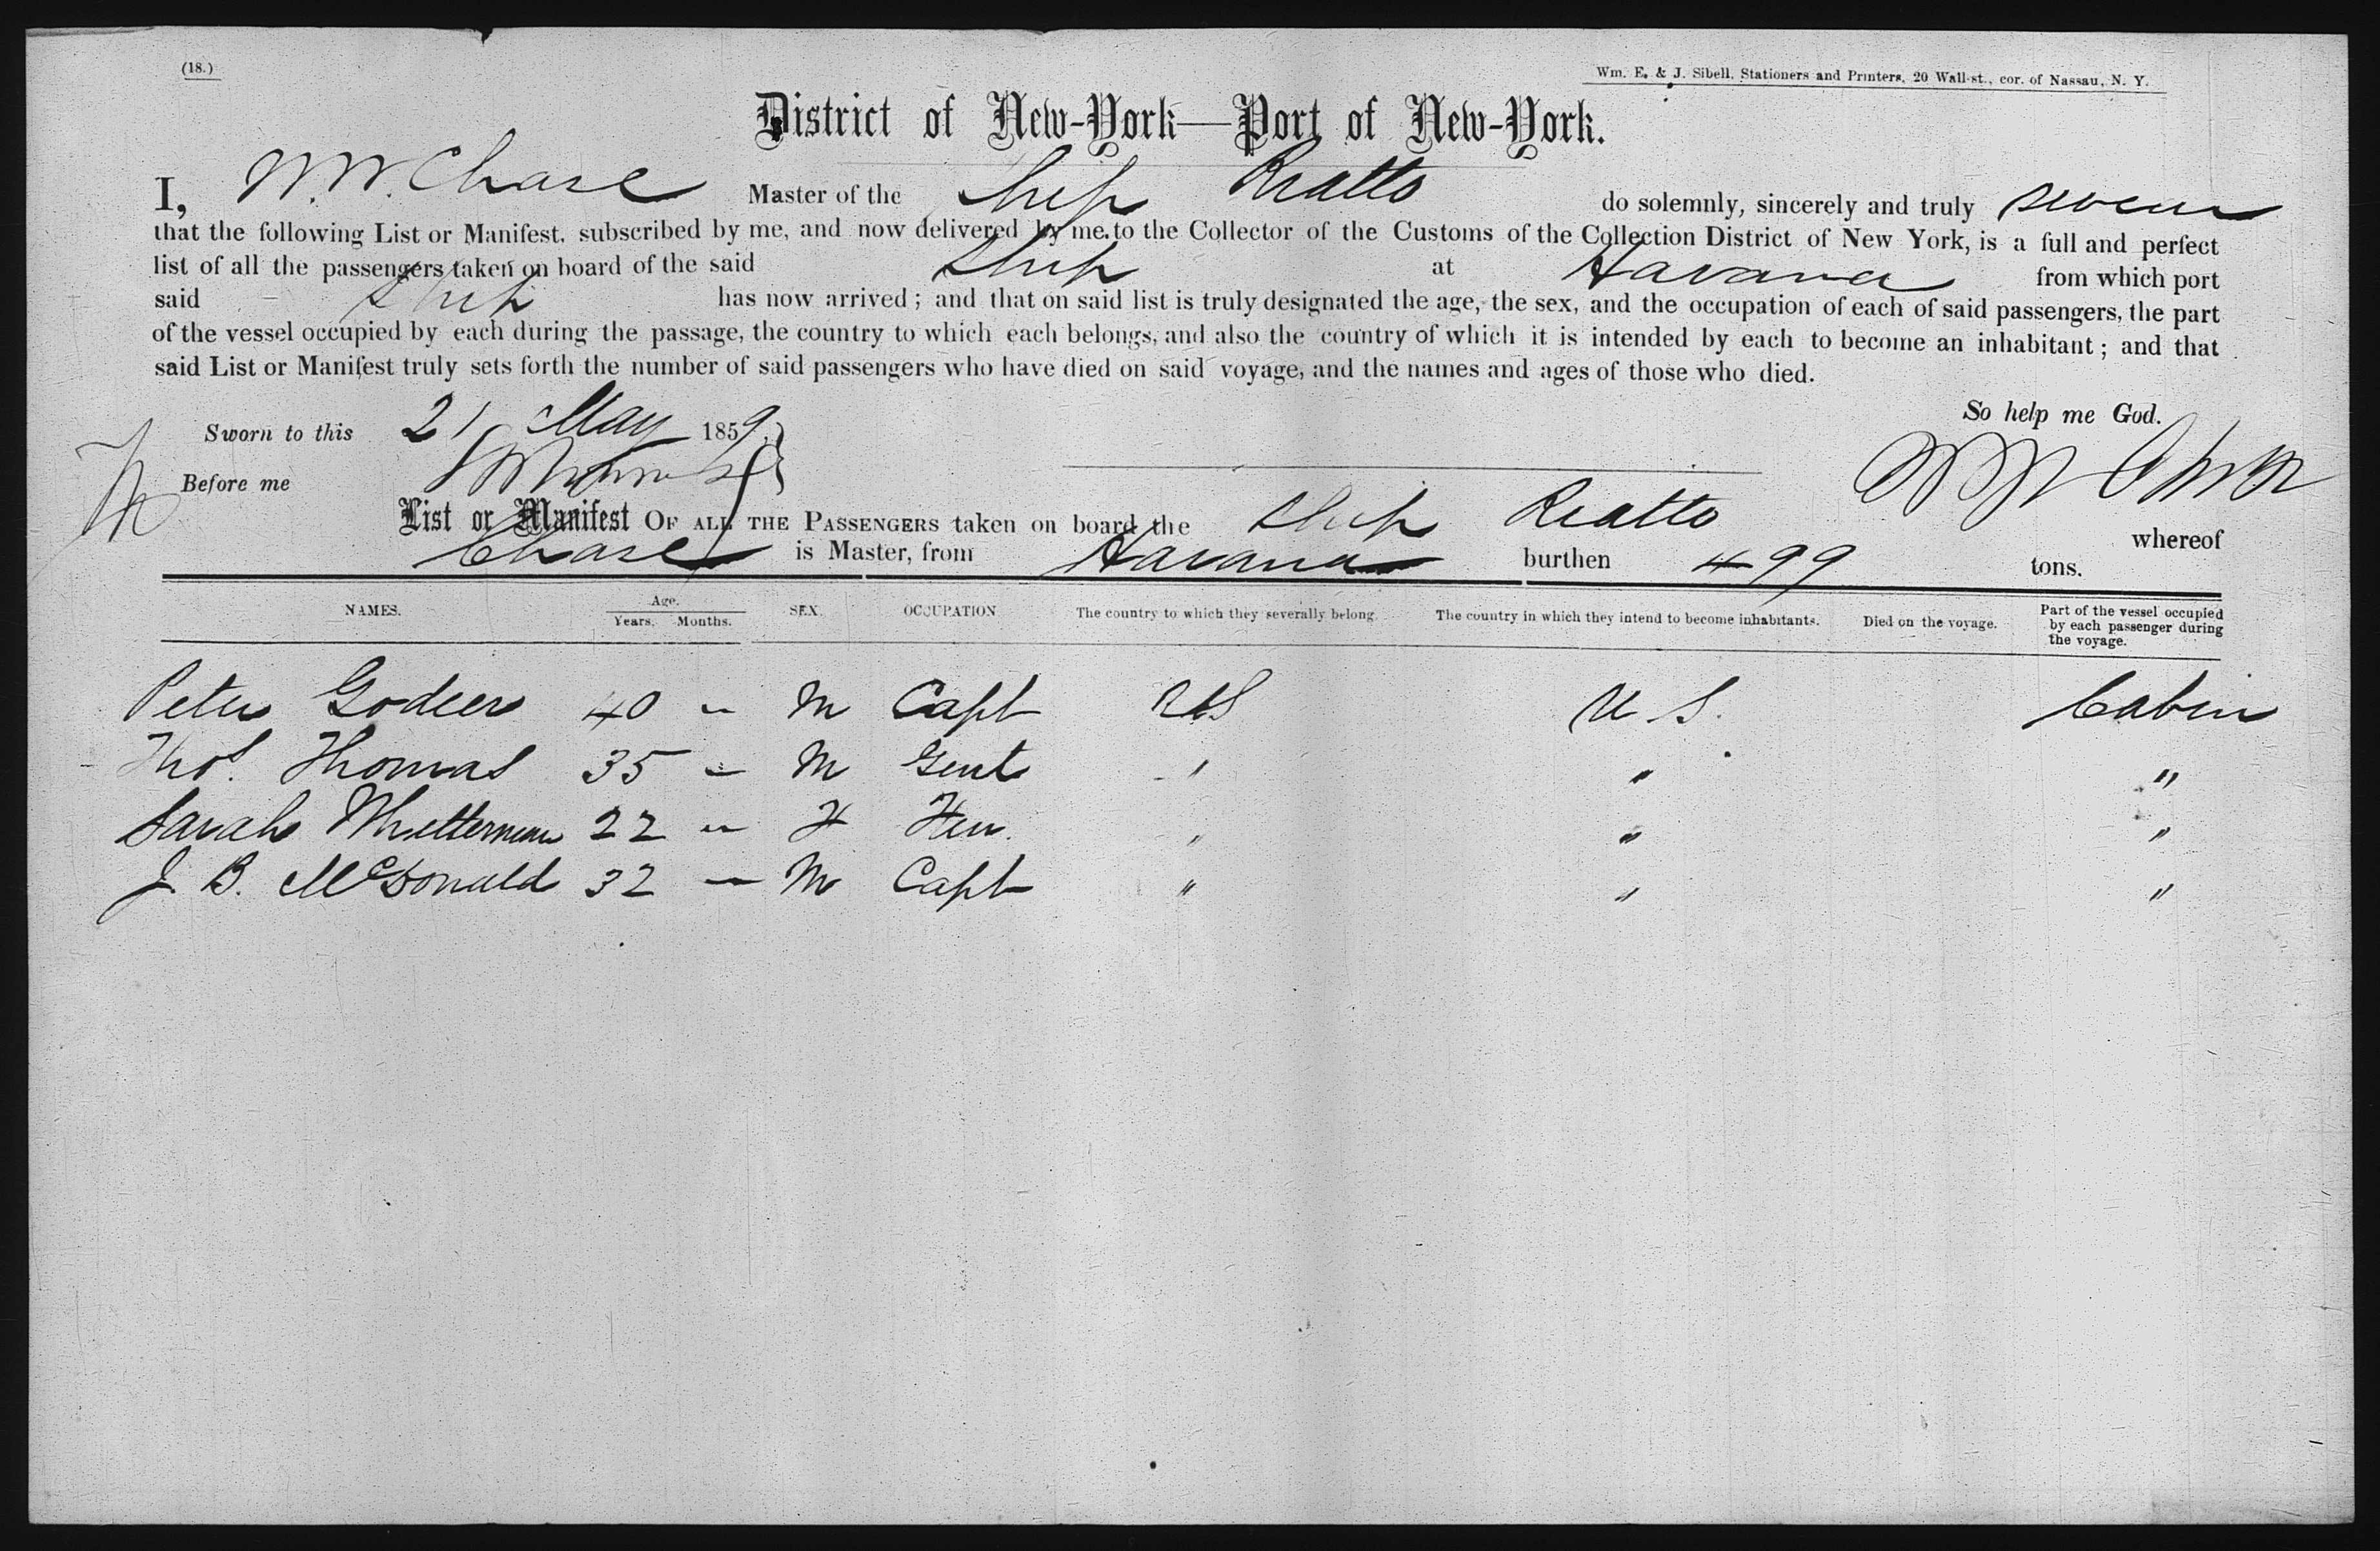 (18.)
Wm. E. & J. Sibell, Stationers and Printers, 20 Wall-st., cor. of Nassau, N. Y.
District of New-York—Port of New-York.
I, W. W. Chase Master of the Ship Rialto do solemnly, sincerely and truly swear
that the following List or Manifest, subscribed by me, and now delivered by me to the Collector of the Customs of the Collection District of New York, is a full and perfect
list of all the passengers taken on board of the said Ship at Havana from which port
said Ship has now arrived; and that on said list is truly designated the age, the sex, and the occupation of each of said passengers, the part
of the vessel occupied by each during the passage, the country to which each belongs, and also the country of which it is intended by each to become an inhabitant; and that
said List or Manifest truly sets forth the number of said passengers who have died on said voyage, and the names and ages of those who died.
So help me God.
Sworn to this 21 May 1859
Before me
W W Chase
List or Manifest OF ALL THE PASSENGERS taken on board the Ship Rialto whereof
Chase is Master, from Havana burthen 499 tons.
NAMES. Age. Years. Months. SEX. OCCUPATION The country to which they severally belong. The country in which they intend to become inhabitants. Died on the voyage. Part of the vessel occupied by each passenger during the voyage.
Peter Godeer 40 – M Capt US U S. Cabin
Thos. Thomas 35 – M Gent " " "
Sarah 22 – F " " "
J. B. McDonald 32 – M Capt " " "